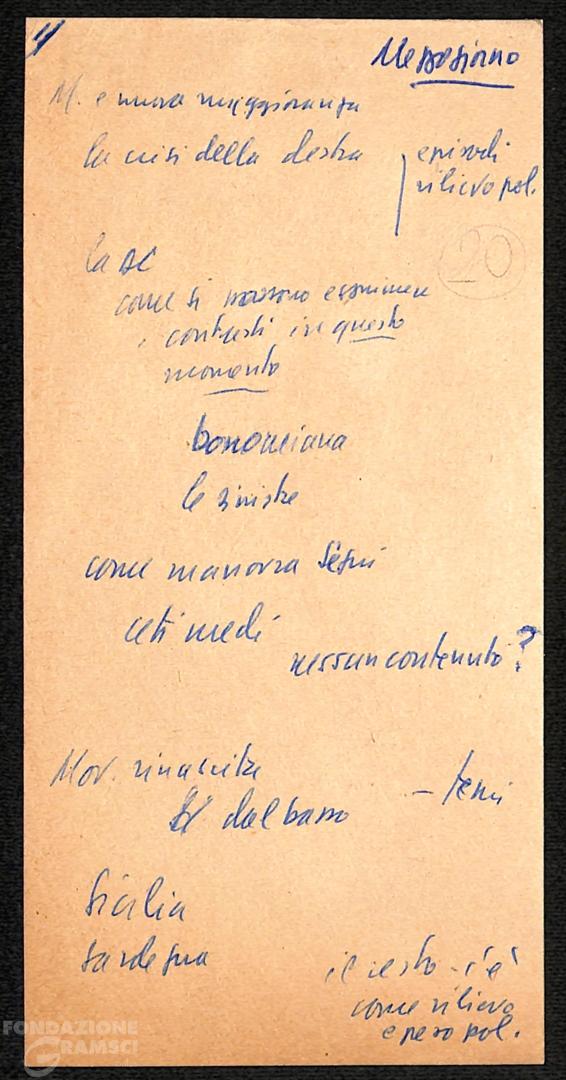 4
Mezzogiorno
M. e nuova maggioranza
la crisi della destra
episodi
rilievo pol.
20
la DC
come si possono esprimere
i contrasti in questo
momento
bonomiana
le sinistre
come manovra Segni
ceti medi
nessun contenuto?
Mov. rinascita
dal basso
– temi
Sicilia
Sardegna
il resto c'è
come rilievo
e peso pol.
FONDAZIONE
GRAMSCI